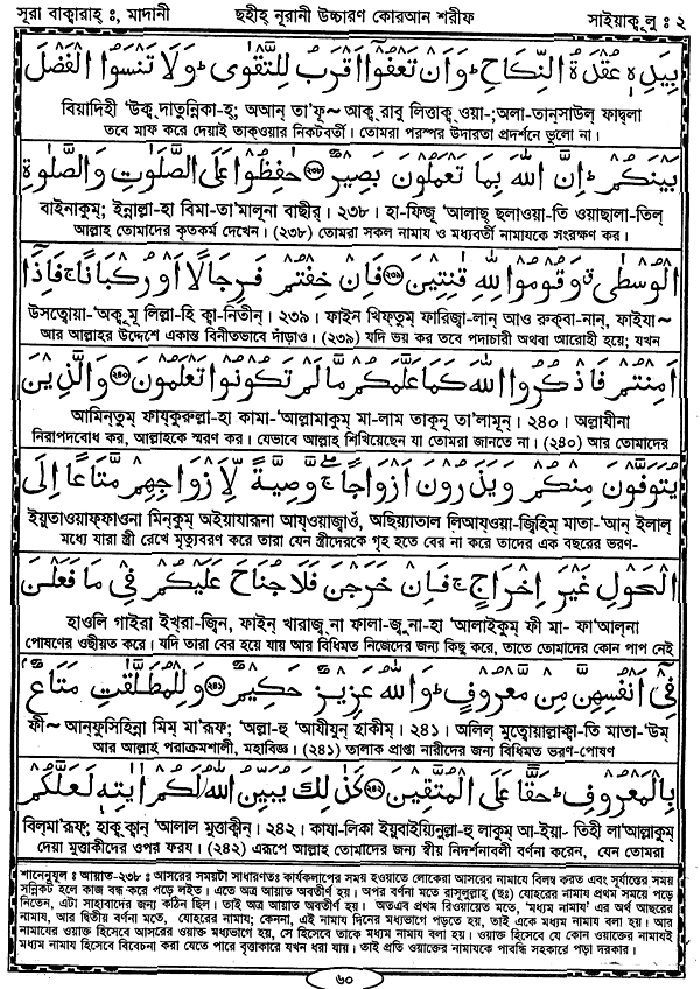 সূরা বাক্বারাহ্ ঃ, মাদানী
ছহীহ্ নূরানী উচ্চারণ কোরআন শরীফ
সাইয়াকূলু ঃ ২
بِيَدِهٖ عُقْدَةُ النِّكَاحِ ؕ وَاَنْ تَعْفُوْٓا اَقْرَبُ لِلتَّقْوٰى ؕ وَلَا تَنْسَوُا الْفَضْلَ
বিয়াদিহী ‘উক্ব্দাতুন্নিকা-হ্; অআন্ তা’ফূ~ আক্ব্রাবু লিত্তাক্ব্ওয়া-; অলা-তান্সাউল্ ফাদ্ব্লা
তবে মাফ করে দেয়াই তাক্ওয়ার নিকটবর্তী। তোমরা পরস্পর উদারতা প্রদর্শনে ভুলো না।
بَيْنَكُمْ ؕ اِنَّ اللهَ بِمَا تَعْمَلُوْنَ بَصِيْرٌ ﴿٢٣٧﴾ حٰفِظُوْا عَلَى الصَّلَوٰتِ وَالصَّلٰوةِ
বাইনাকুম্; ইন্নাল্লা-হা বিমা-তা’মালূনা বাছীর্। ২৩৮। হা-ফিজূ ‘আলাছ্ ছলাওয়া-তি ওয়াছালা-তিল্
আল্লাহ্ তোমাদের কৃতকর্ম দেখেন। (২৩৮) তোমরা সকল নামায ও মধ্যবর্তী নামাযকে সংরক্ষণ কর।
الْوُسْطٰى ۗ وَقُوْمُوْا لِلّٰهِ قٰنِتِيْنَ ﴿২৩৮﴾ فَاِنْ خِفْتُمْ فَرِجَالًا اَوْ رُكْبَانًا ۚ فَاِذَآ
উস্ত্বোয়া-‘অক্বূমূ লিল্লা-হি ক্বা-নিতীন্। ২৩৯। ফাইন খিফ্তুম্ ফারিজ্বা-লান্ আও রুক্বা-নান্, ফাইযা~
আর আল্লাহর উদ্দেশে একান্ত বিনীতভাবে দাঁড়াও। (২৩৯) যদি ভয় কর তবে পদাচারী অথবা আরোহী হয়ে; যখন
اَمِنْتُمْ فَاذْكُرُوا اللهَ كَمَا عَلَّمَكُمْ مَّا لَمْ تَكُوْنُوْا تَعْلَمُوْنَ ﴿২৪০﴾ وَالَّذِيْنَ
আমিন্তুম্ ফায্কুরুল্লা-হা কামা-‘আল্লামাকুম্ মা-লাম তাকূনূ তা’লামূন্। ২৪০। অল্লাযীনা
নিরাপদবোধ কর, আল্লাহকে স্মরণ কর। যেভাবে আল্লাহ্ শিখিয়েছেন যা তোমরা জানতে না। (২৪০) আর তোমাদের
يُتَوَفَّوْنَ مِنْكُمْ وَيَذَرُوْنَ اَزْوَاجًا ۖ وَّصِيَّةً لِّاَزْوَاجِهِمْ مَّتَاعًا اِلَى
ইয়ুতাওয়াফ্ফাওনা মিন্কুম্ অইয়াযারূনা আয্ওয়াজ্বাওঁ, অছিয়্যাতাল লিআয্ওয়া-জ্বিহিম্ মাতা-‘আন্ ইলাল্
মধ্যে যারা স্ত্রী রেখে মৃত্যুবরণ করে তারা যেন স্ত্রীদেরকে গৃহ হতে বের না করে তাদের এক বছরের ভরণ-
الْحَوْلِ غَيْرَ اِخْرَاجٍ ۚ فَاِنْ خَرَجْنَ فَلَا جُنَاحَ عَلَيْكُمْ فِيْ مَا فَعَلْنَ
হাওলি গাইরা ইখ্রা-জ্বিন্, ফাইন্ খারাজ্ব্না ফালা-জু্না-হা ‘আলাইকুম্ ফী মা- ফা‘আল্না
পোষণের ওছীয়ত করে। যদি তারা বের হয়ে যায় আর বিধিমত নিজেদের জন্য কিছু করে, তাতে তোমাদের কোন পাপ নেই
فِيْٓ اَنْفُسِهِنَّ مِنْ مَّعْرُوْفٍ ؕ وَاللهُ عَزِيْزٌ حَكِيْمٌ ﴿২৪১﴾ وَلِلْمُطَلَّقٰتِ مَتَاعٌۢ
ফী~ আন্ফুসিহিন্না মিম্ মা’রূফ; ‘অল্লা-হু ‘আযীযুন্ হাকীম্। ২৪১। অলিল্ মুত্বোয়াল্লাক্বা-তি মাতা-‘উম্
আর আল্লাহ্ পরাক্রমশালী, মহাবিজ্ঞ। (২৪১) তালাক প্রাপ্তা নারীদের জন্য বিধিমত ভরণ-পোষণ
بِالْمَعْرُوْفِ ؕ حَقًّا عَلَى الْمُتَّقِيْنَ ﴿২৪২﴾ كَذٰلِكَ يُبَيِّنُ اللهُ لَكُمْ اٰيٰتِهٖ لَعَلَّكُمْ
বিল্মা’রূফ্; হাক্ব্ক্বান্ ‘আলাল মুত্তাক্বীন্। ২৪২। কাযা-লিকা ইয়ুবাইয়্যিনুল্লা-হু লাকুম্ আ-ইয়া- তিহী লা‘আল্লাকুম্
দেয়া মুত্তাকীদের ওপর ফরয। (২৪২) এরূপে আল্লাহ তোমাদের জন্য স্বীয় নিদর্শনাবলী বর্ণনা করেন, যেন তোমরা
শানেনুযুল ঃ আয়াত-২৩৮ ঃ আসরের সময়টা সাধারণতঃ কার্যকলাপের সময় হওয়াতে লোকেরা আসরের নামাযে বিলম্ব করত এবং সূর্যাস্তের সময়
সন্নিকট হলে কাজ বন্ধ করে পড়ে লইত। এতে অত্র আয়াত অবতীর্ণ হয়। অপর বর্ণনা মতে রাসুলুল্লাহ্ (ছঃ) যোহরের নামায প্রথম সময়ে পড়ে
নিতেন, এটা সাহাবাদের জন্য কঠিন ছিল। তাই অত্র আয়াত অবতীর্ণ হয়। অতএব প্রথম রিওয়ায়েত মতে, ‘মধ্যম নামায’ এর অর্থ আছরের
নামায, আর দ্বিতীয় বর্ণনা মতে, যোহরের নামায; কেননা, এই নামায দিনের মধ্যভাগে পড়তে হয়, তাই একে মধ্যম নামায বলা হয়। আর
নামাযের ওয়াক্ত হিসেবে আসরের ওয়াক্ত মধ্যভাগে হয়, সে হিসেবে তাকে মধ্যম নামায বলা হয়। ওয়াক্ত হিসেবে যে কোন ওয়াক্তের নামাযই
মধ্যম নামায হিসেবে বিবেচনা করা যেতে পারে বৃত্তাকারে যখন ধরা যায়। তাই প্রতি ওয়াক্তের নামাযকে পাবন্দি সহকারে পড়া দরকার।
৬০